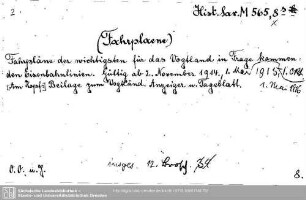 2
Hist. Sax. M 565,8
(Fahrpläne)
Fahrpläne der wichtigsten für das Vogtland in Frage kommen-
den Eisenbahnlinien. Gültig ab 2. November 1914, 1. Mai 1915, 1. Okt.
(Am Kopf:) Beilage zum Vogtländ. Anzeiger u. Tageblatt. 1. Mai 1916
O. O. u. J.
insges. 12 Brosch.
8.
Sächsische Landesbibliothek -
Staats- und Universitätsbibliothek Dresden